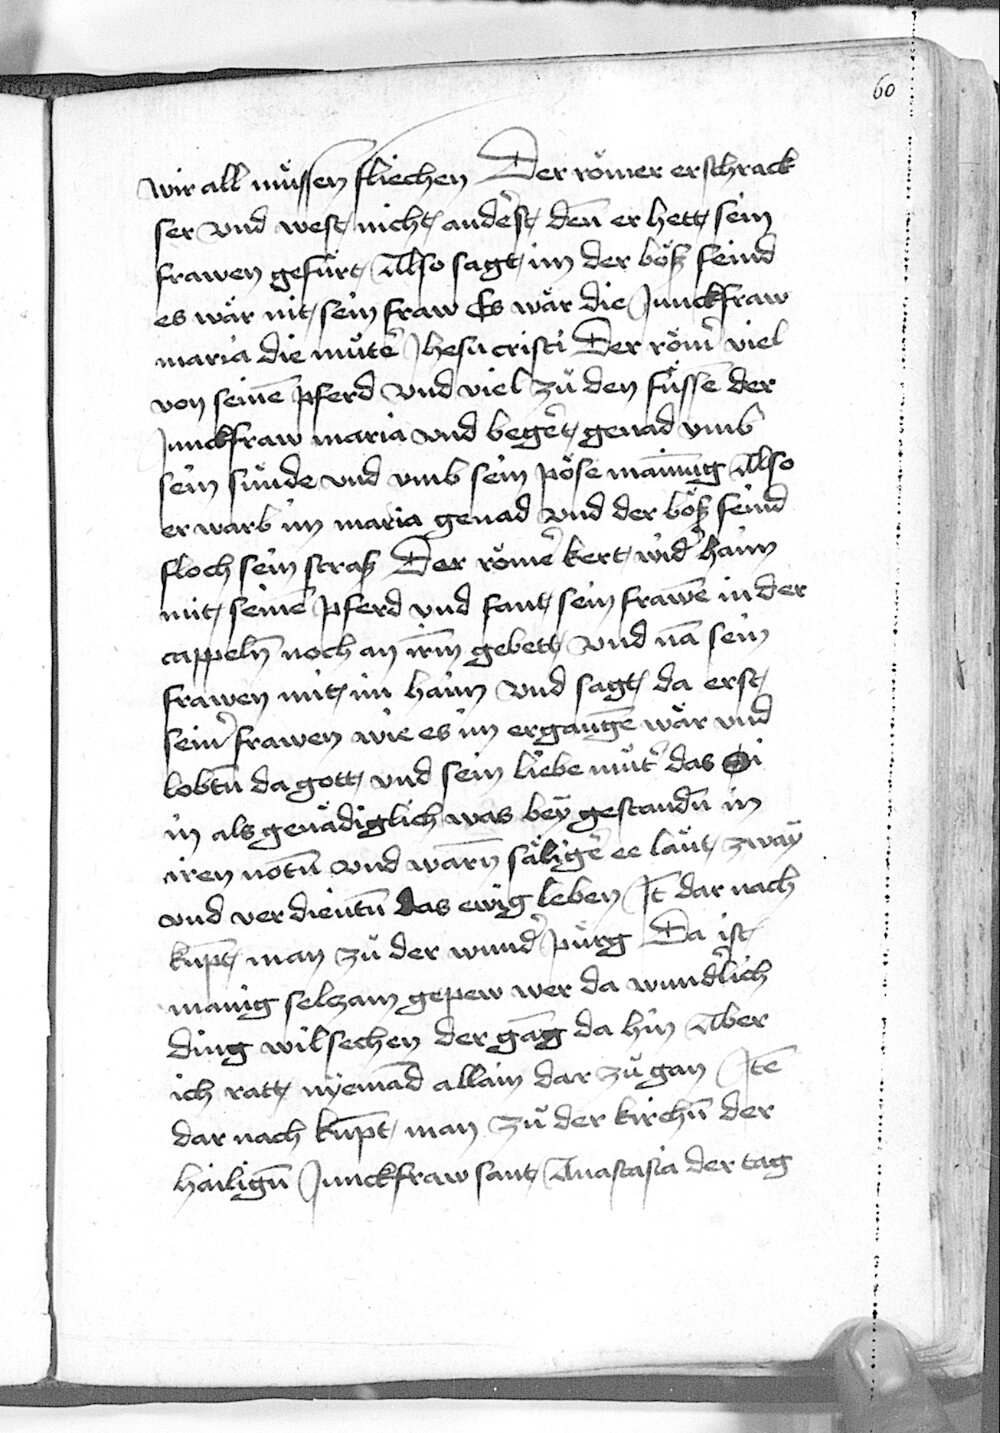 60
wir all müssen fliechen Der römer erschrack
ser vnd west nicht anderst den̄ er hett sein
frawen gefürt Also sagt im der böß feind
es wär nit sein fraw Es wär die Junckfraw
maria die muter̄ Jhesu cristi Der röm̄ viel
von seinē pferd vnd viel zů den füssē der
Junckfraw maria vnd begert genad vmb
sein sünde vnd vmb sein pöse mainūg Also
erwarb im maria genad vnd der böß feind
floch sein straß Der römer̄ kert wid̄ haim
mit seinē pferd vnd fant sein frawē in der
cappeln̄ noch an irm̄ gebett vnd nā sein
frawen mit im haim vnd sagt da erst
sein̄ frawen wie es im ergangē wär vnd
lobtn̄ da gott vnd sein liebe mut̄ das si
in als genädiglich was beÿ gestandn̄ in
iren nötn̄ vnd warn̄ säliger̄ ee läut zwaÿ
vnd verdientn̄ das ewig leben Jt̄ dar nach
kūpt man zů der wund̄ pürg Da ist
manig selczam gepew wer da wund̄lich
ding wil sechen der gāg da hin Aber
ich ratt nÿemād allain dar zů gan Jtē
dar nach kūpt man zů der kirchn̄ der
hailign̄ Junckfraw sant Anastasia der tag